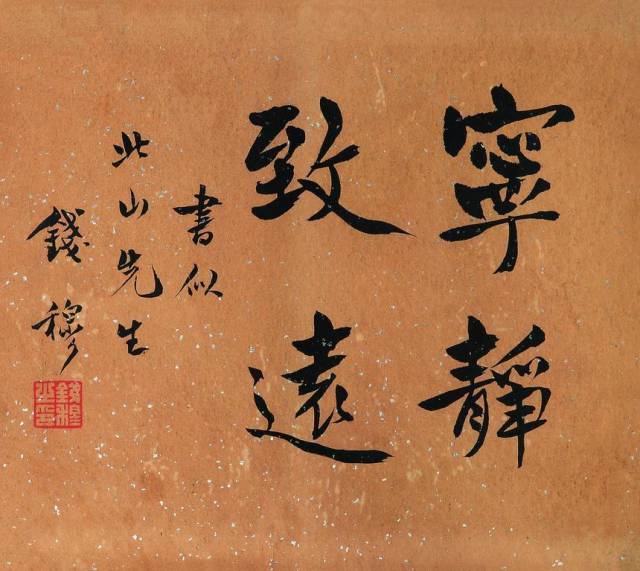 寧靜
致遠
書似
此山先生
錢穆
錢穆之印